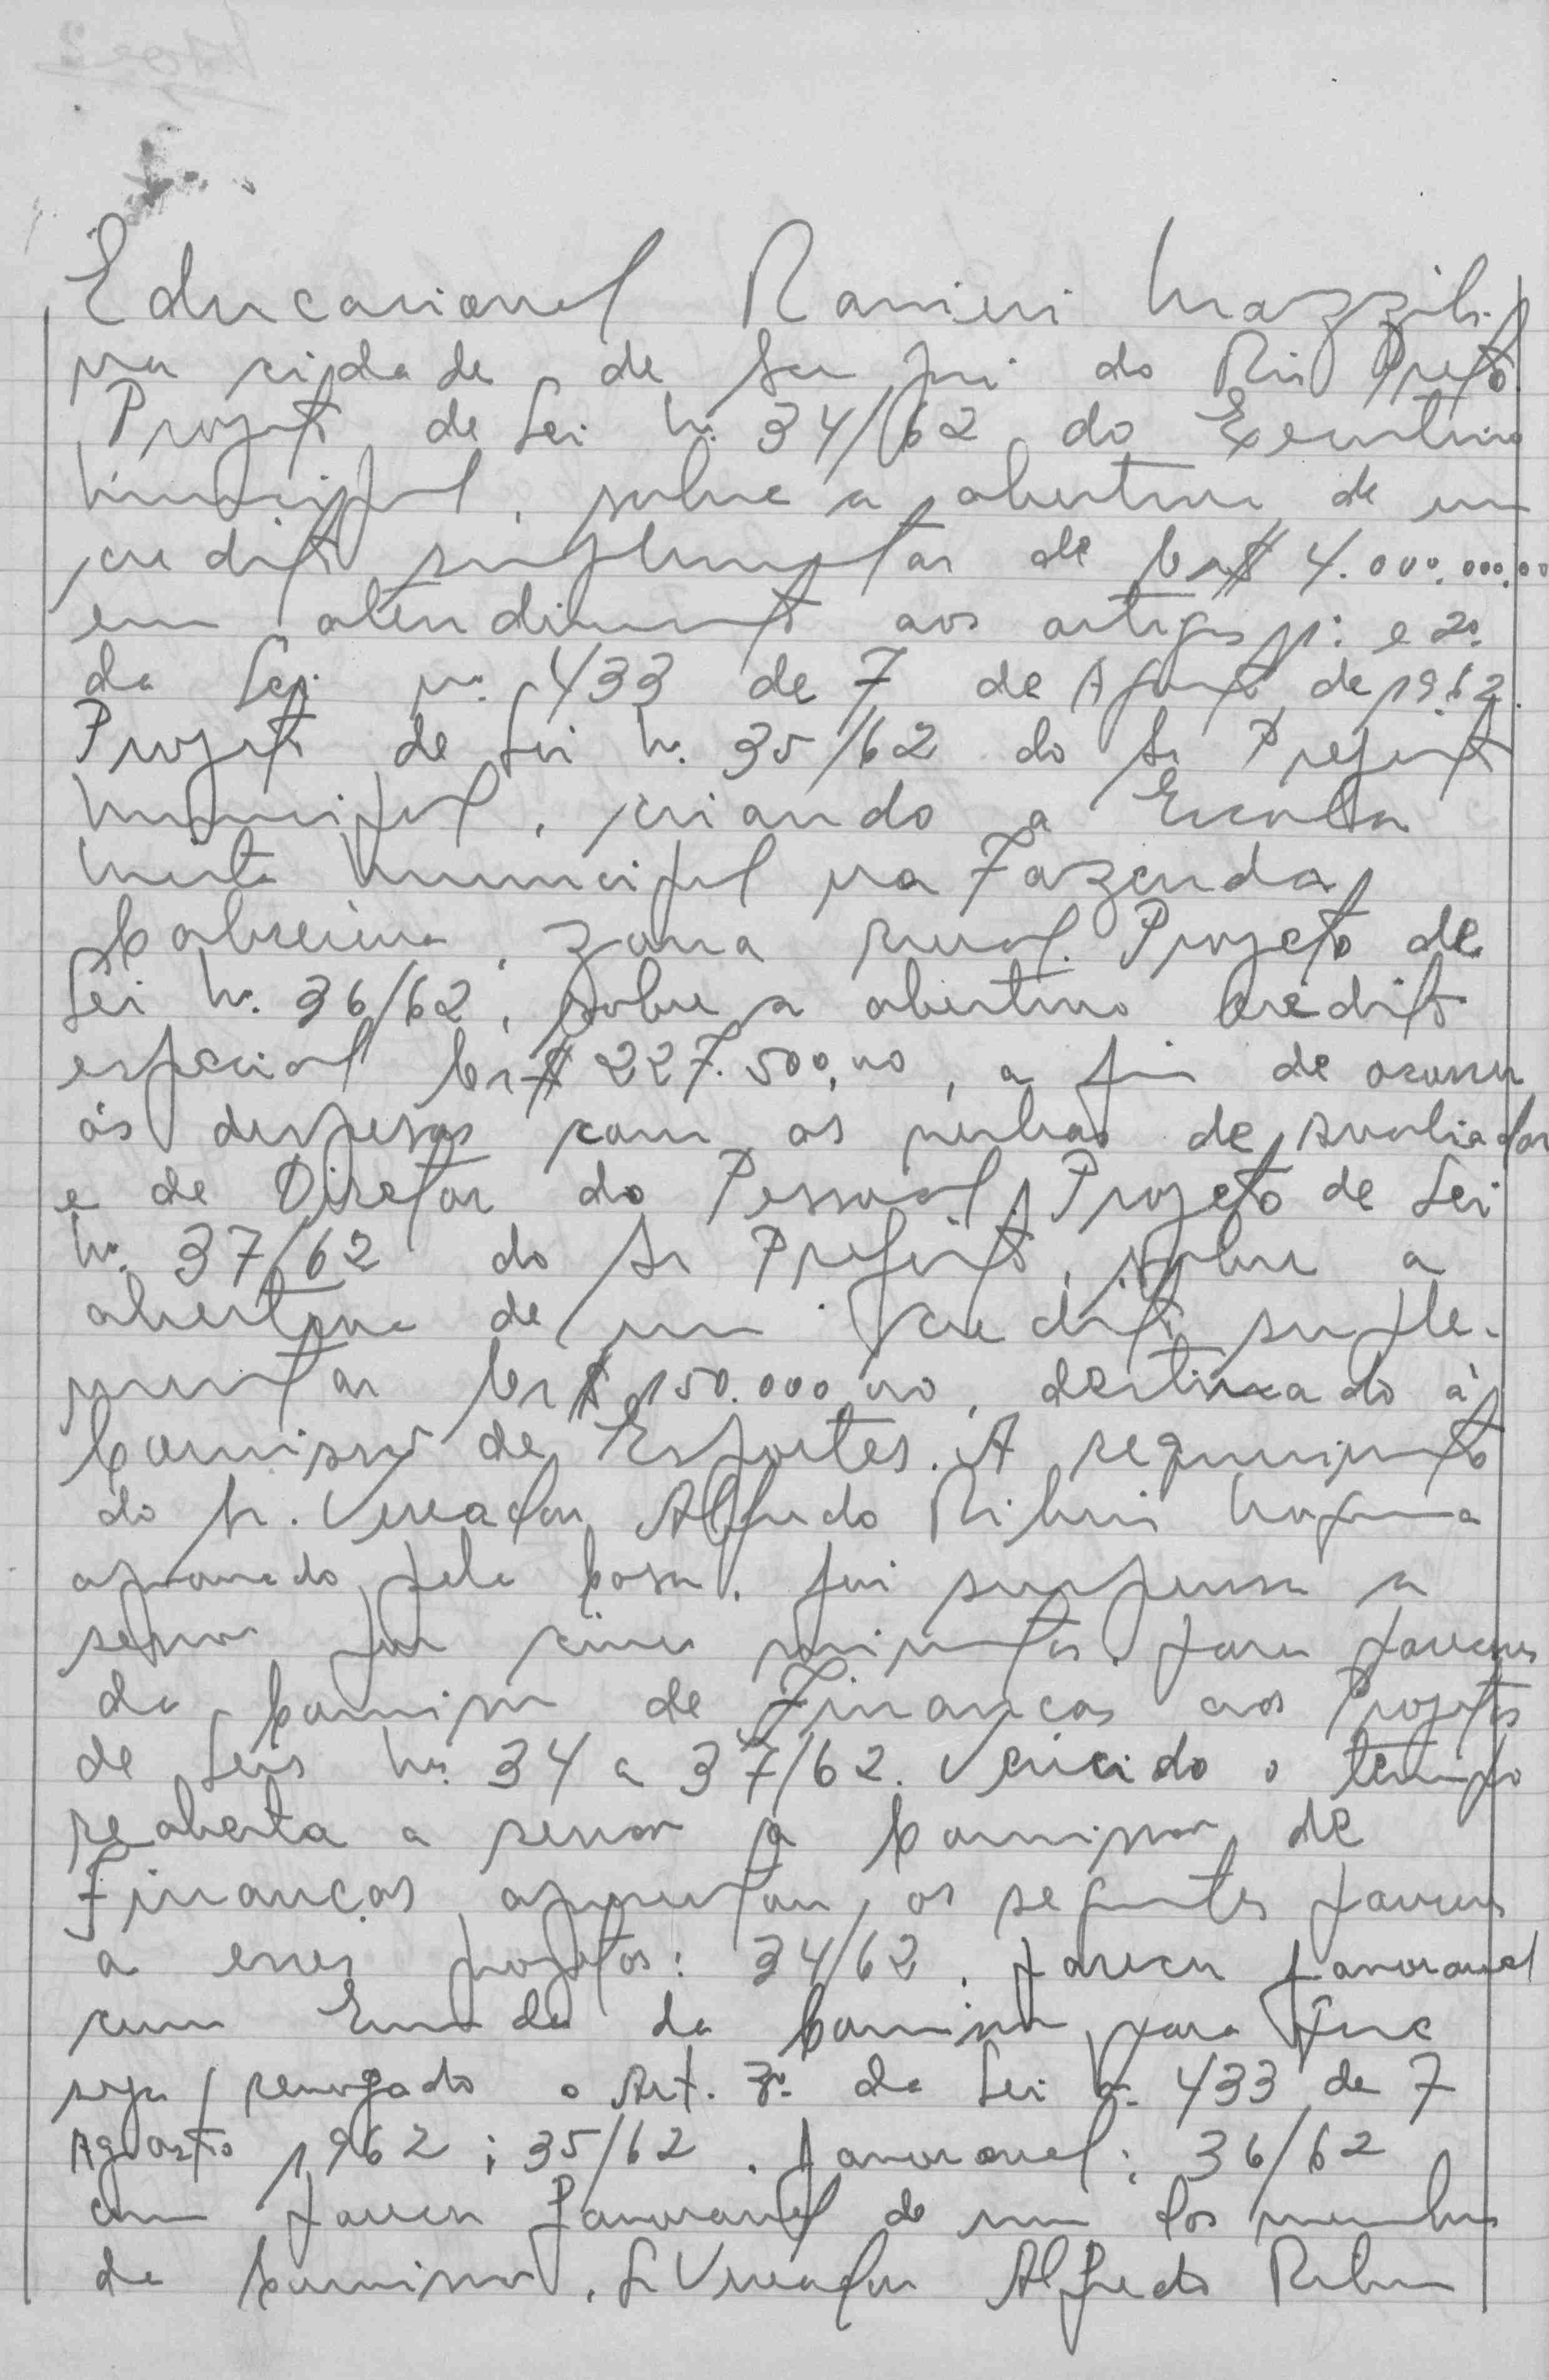 Educacional Ranieri Mazzilli
na cidade de São José do Rio Preto.
Projeto de Lei Nº. 34/62 do Executivo
Municipal, sobre a abertura de um
credito suplementar de Cr$ 4.000.000,00
em atendimento aos artigos 1º e 2º.
da Lei nº. 433 de 7 de Agosto de 1962.
Projeto de Lei Nº. 35/62 do Sr Prefeito
Municipal, criando a Escola
Mista Municipal na Fazenda
Cabreúva, zona rural. Projeto de
Lei Nº. 36/62, sobre a abertura credito
especial Cr$ 227.500,00, a fim de ocorrer
ás despesas com os verbas de Avaliador
e de Diretor do Pessoal, Projeto de Lei
Nº. 37/62 do Sr Prefeito, sobre a
abertura de um credito suple-
mentar Cr$ 150.000,00, destinado à
Comissão de Esportes. A requerimento
do Sr. Vereador Alfredo Ribeiro
aprovado pela Casa, foi suspensa a
sessão por cinco minutos, para parecer
da Comissão de Finanças aos Projetos
de Leis Nº. 34 a 37/62. Vencido o tempo
reaberta a sessão a Comissão de
Finanças, apresentou, os seguintes pareceres
a esses projetos: 34/62, parecer favoravel
com Emenda da Comissão para que
seja revogado o Art. 3º. da Lei nº. 433 de 7
Agosto 1962; 35/62, favoravel; 36/62
com parecer favoravel de um dos membros
da Comissão, Sr Vereador Alfredo Ribeiro